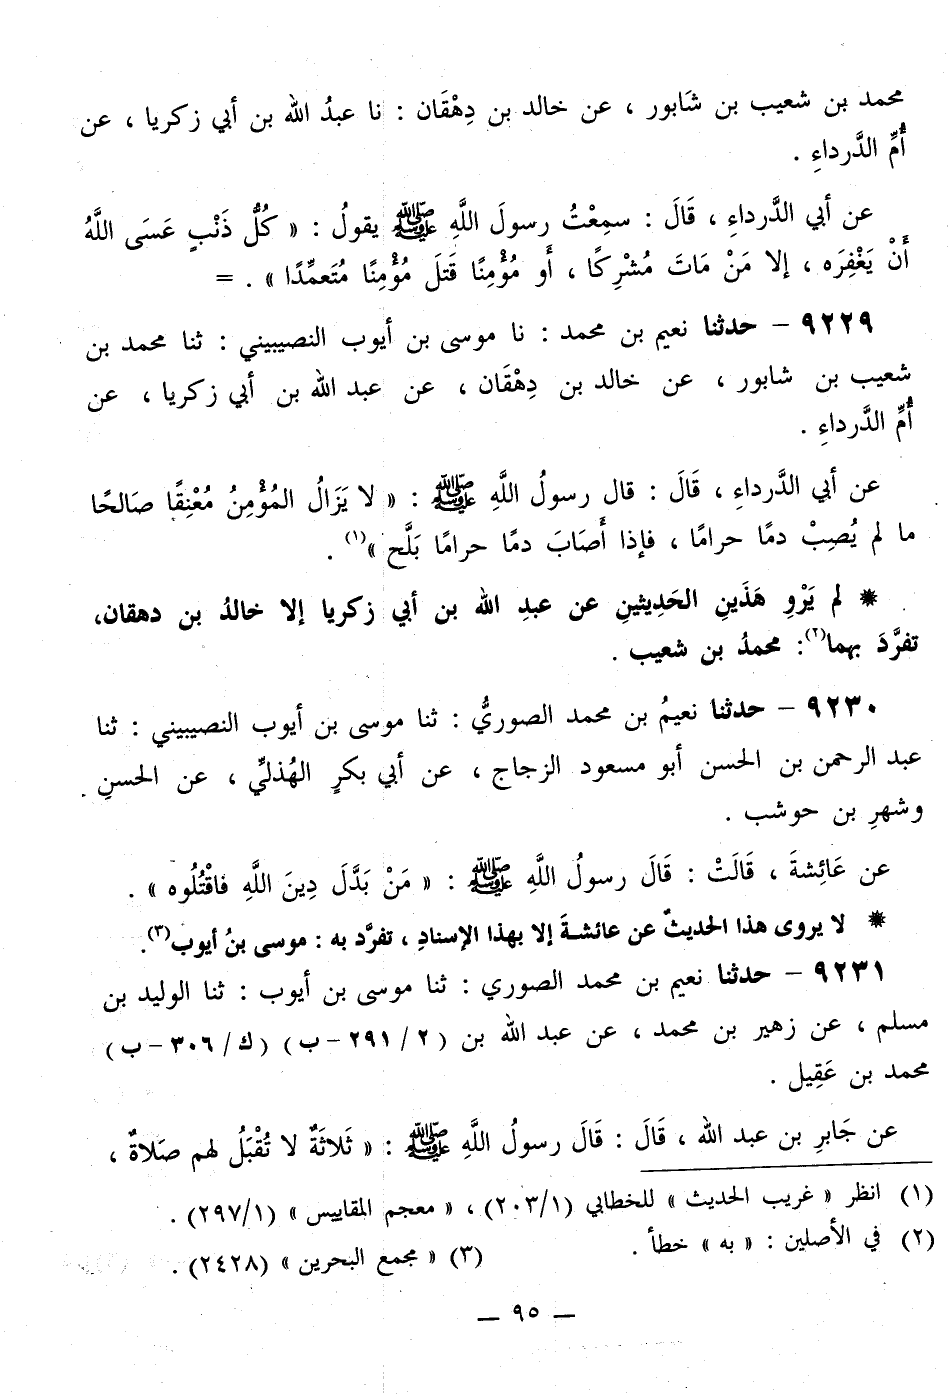 محمد بن شعيب بن شَابور ، عن خالد بن دِهْقَان : نا عبدُ الله بن أبي زكريا ، عن
أُمِّ الدَّرداءِ .
عن أبي الدَّرداءِ ، قَالَ : سمِعْتُ رسولَ اللَّهِ ﷺ يقولُ : « كُلُّ ذَنْبٍ عَسَى اللَّهُ
أَنْ يَغْفِرَه ، إلا مَنْ مَاتَ مُشْرِكًا ، أَو مُؤْمِنًا قَتلَ مُؤْمِنًا مُتَعمِّدًا » . =
٩٢٢٩ – حدثنا نعيم بن محمد : نا موسى بن أيوب النصيبيني : ثنا محمد بن
شعيب بن شابور ، عن خالد بن دِهْقَان ، عن عبد الله بن أبي زكريا ، عن
أُمِّ الدَّرداءِ .
عن أبي الدَّرداءِ ، قَالَ : قال رسولُ اللَّهِ ﷺ : « لا يَزَالُ المُؤْمِنُ مُعْنِقًا صَالحًا
ما لم يُصِبْ دمًا حرامًا ، فإذا أَصَابَ دمًا حرامًا بَلَّح »(١) .
* لم يَرْوِ هَذَينِ الحَدِيثينِ عن عبدِ الله بن أبي زكريا إلا خالدُ بن دهقان،
تفرَّدَ بهما(٢): محمدُ بن شعيب .
٩٢٣٠ – حدثنا نعيمُ بن محمد الصوريُّ : ثنا موسى بن أيوب النصيبيني : ثنا
عبد الرحمن بن الحسن أبو مسعود الزجاج ، عن أبي بكرٍ الهُذليِّ ، عن الحسنِ
وشهرِ بن حوشب .
عن عَائِشةَ ، قَالَتْ : قَالَ رسولُ اللَّهِ ﷺ : « مَنْ بَدَّلَ دِينَ اللَّهِ فاقْتُلُوه » .
* لا يروى هذا الحديثُ عن عائشةَ إلا بهذا الإسنادِ ، تفرَّد به : موسى بنُ أيوب(٣).
٩٢٣١ – حدثنا نعيم بن محمد الصوري : ثنا موسى بن أيوب : ثنا الوليد بن
مسلم ، عن زهير بن محمد ، عن عبد الله بن (٢ / ٢٩١ – ب) (ك / ٣٠٦ – ب)
محمد بن عَقِيل .
عن جَابرِ بن عبد الله ، قَالَ : قَالَ رسولُ اللَّهِ ﷺ : « ثَلاثَةٌ لا تُقْبَلُ لهم صَلاةٌ ،
(١) انظر « غريب الحديث » للخطابي (٢٠٣/١) ، « معجم المقاييس » (٢٩٧/١) .
(٢) في الأصلين : « به » خطأ . (٣) « مجمع البحرين » (٢٤٢٨) .
— ٩٥ —